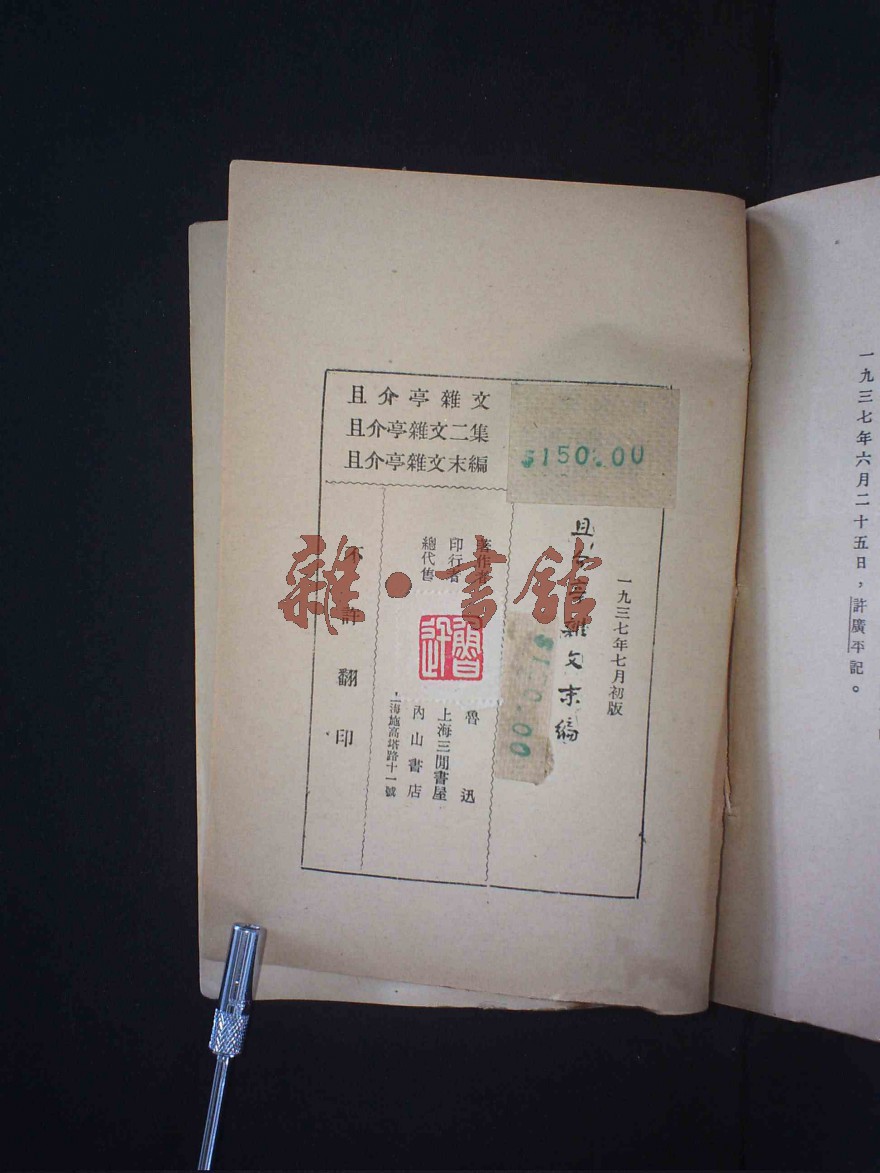 一九三七年六月二十五日，許廣平記。
且介亭雜文
且介亭雜文二集
且介亭雜文末編
$150.00
一九三七年七月初版
且介亭雜文末編
$150.00
著作者 魯迅
印行者 上海三閒書屋
總代售 內山書店
海施高塔路十一號
不許翻印
魯迅
雜·書館